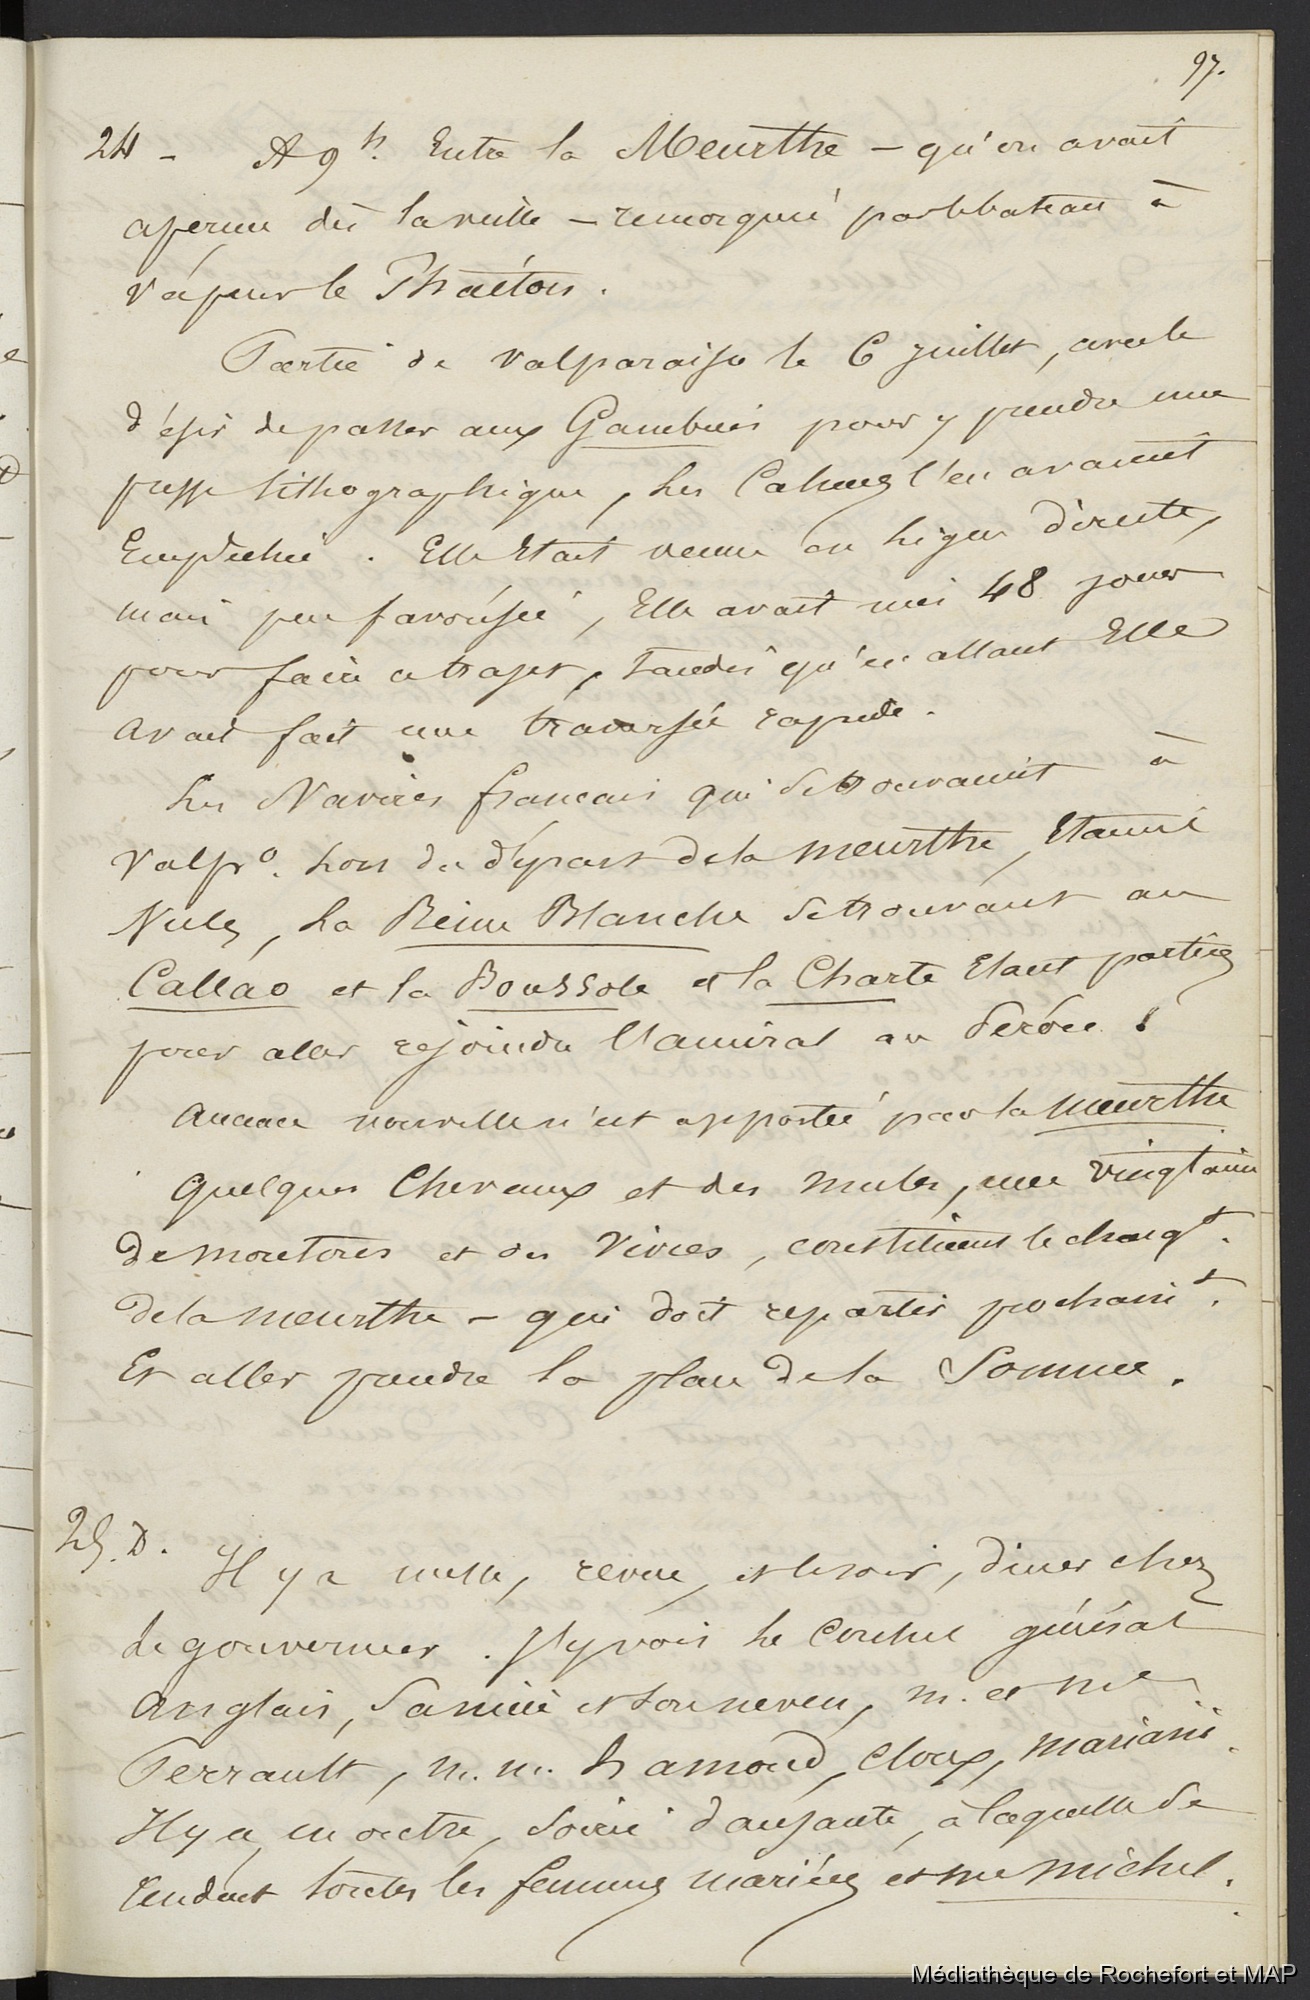 97.
24 - A 9h. Entre la Meurthe – qu'on avait
aperçue dès la veille – remorquée par le bateau à
vapeur le Phaéton.
Partie de Valparaiso le 6 juillet, avec le
désir de passer aux Gambiers pour y prendre une
presse lithographique, les Calmes l'en avaient
Empêchée. Elle était venue en ligne directe,
mais peu favorisée, Elle avait mis 48 jours
pour faire ce trajet, tandis qu'en allant Elle
avait fait une traversée rapide.
Les Navires français qui se trouvaient à
Valpo. lors du départ de la Meurthe, étaient
Nuls, la Reine Blanche se trouvant au
Callao et la Boussole et la Charte étant parties
pour aller rejoindre l'amiral au Pérou.
Aucune nouvelle n'est apportée par la Meurthe
Quelques Chevaux et des mules, une vingtaine
de moutons et des Vivres, constituent le chargt.
de la Meurthe – qui doit repartir prochaint.
Et aller prendre la place de la Somme.
25. D. Il y a messe, revue, et le soir, diner chez
le gouverneur. J'y vois le Consul général
Anglais, sa nièce et son neveu, M. et Me.
Perrault, M. M. Hamond, Cloux, Mariani.
Il y a, en outre, soirée dansante, à laquelle se
rendent toutes les femmes mariées et Me Michel.
Médiathèque de Rochefort et MAP